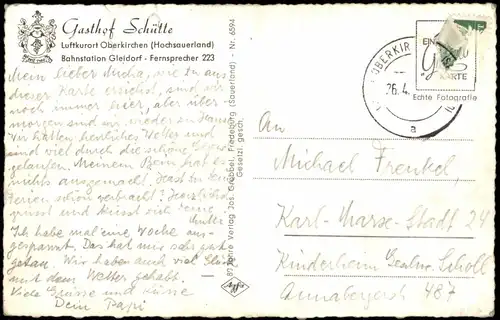 Gasthof Schütte
Luftkurort Oberkirchen (Hochsauerland)
Bahnstation Gleidorf - Fernsprecher 223
Mein lieber Micha, wie du aus
dieser Karte ersiehst, sind wir
noch immer hier, aber über-
morgen sind wir wieder zu Hause.
Wir hatten herrliches Wetter und
sind viel durch die schöne Gegend
gelaufen. Meinem Bein hat es
nichts ausgemacht. Hast du deine
Ferien schön verbracht? Herzlichst
grüsst und küsst dich deine
Mutti
Ich habe mal eine Woche aus-
gespannt. Das hat mir sehr gut
getan. Wir haben auch viel Glück
mit dem Wetter gehabt.
Viele Grüsse und Küsse
Dein Papi
Verlag Jos. Grobbel, Fredeburg (Sauerland) - Nr. 6594
Gesetzl. gesch.
Agfa
OBERKIR
26.4.
a
EIN
KARTE
Echte Fotografie
An
Michael Frenkel,
Karl-Marx-Stadt 24
Kinderheim Geschw. Scholl
Annabergerstr. 487